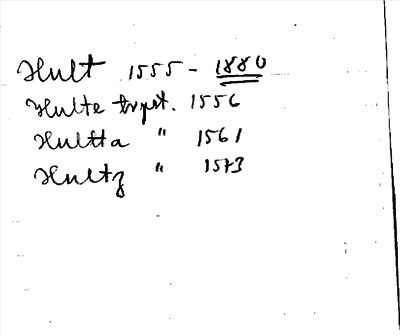 Hult 1555 - 1880
Hulte trpt. 1556
Hultta " 1561
Hultz " 1573